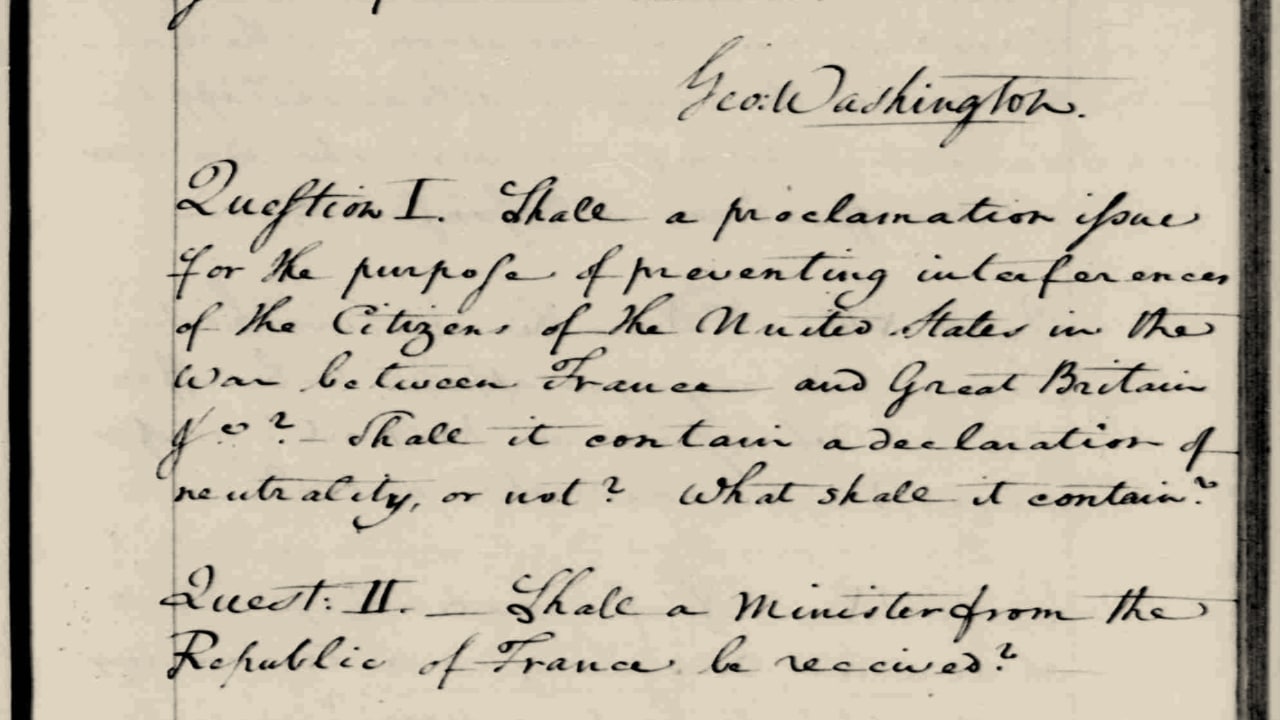 Geo: Washington.
Question I. Shall a proclamation issue
for the purpose of preventing interferences
of the Citizens of the United States in the
war between France and Great Britain
&c? Shall it contain a declaration of
neutrality, or not? What shall it contain?
Quest: II. — Shall a Minister from the
Republic of France be received?